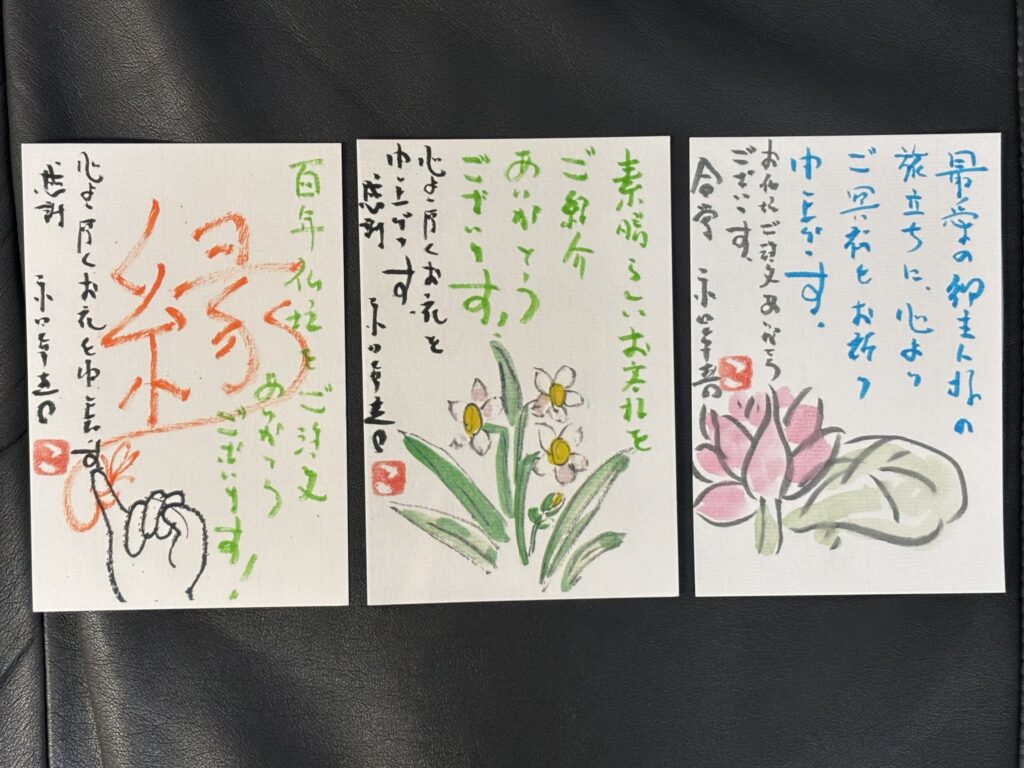 最愛の御主人様の
旅立ちに、心より
ご冥福をお祈り
申上ます。
ご注文ありがとう
ございます。
合掌
素晴らしいお客様を
ご紹介
ありがとう
ございます!
心より厚くお礼を
申上げます。
感謝
百年仏壇をご注文
ありがとう
ございます!
縁
心より厚くお礼を申上ます
感謝